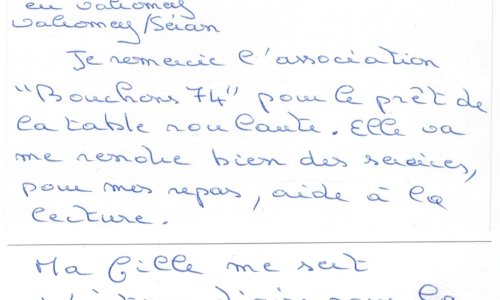 en
Je remercie l'association
"Bouchons 74" pour le prêt de
la table roulante. Elle va
me rendre bien des services,
pour mes repas, aide à la
lecture.
Ma fille me sert
pour la